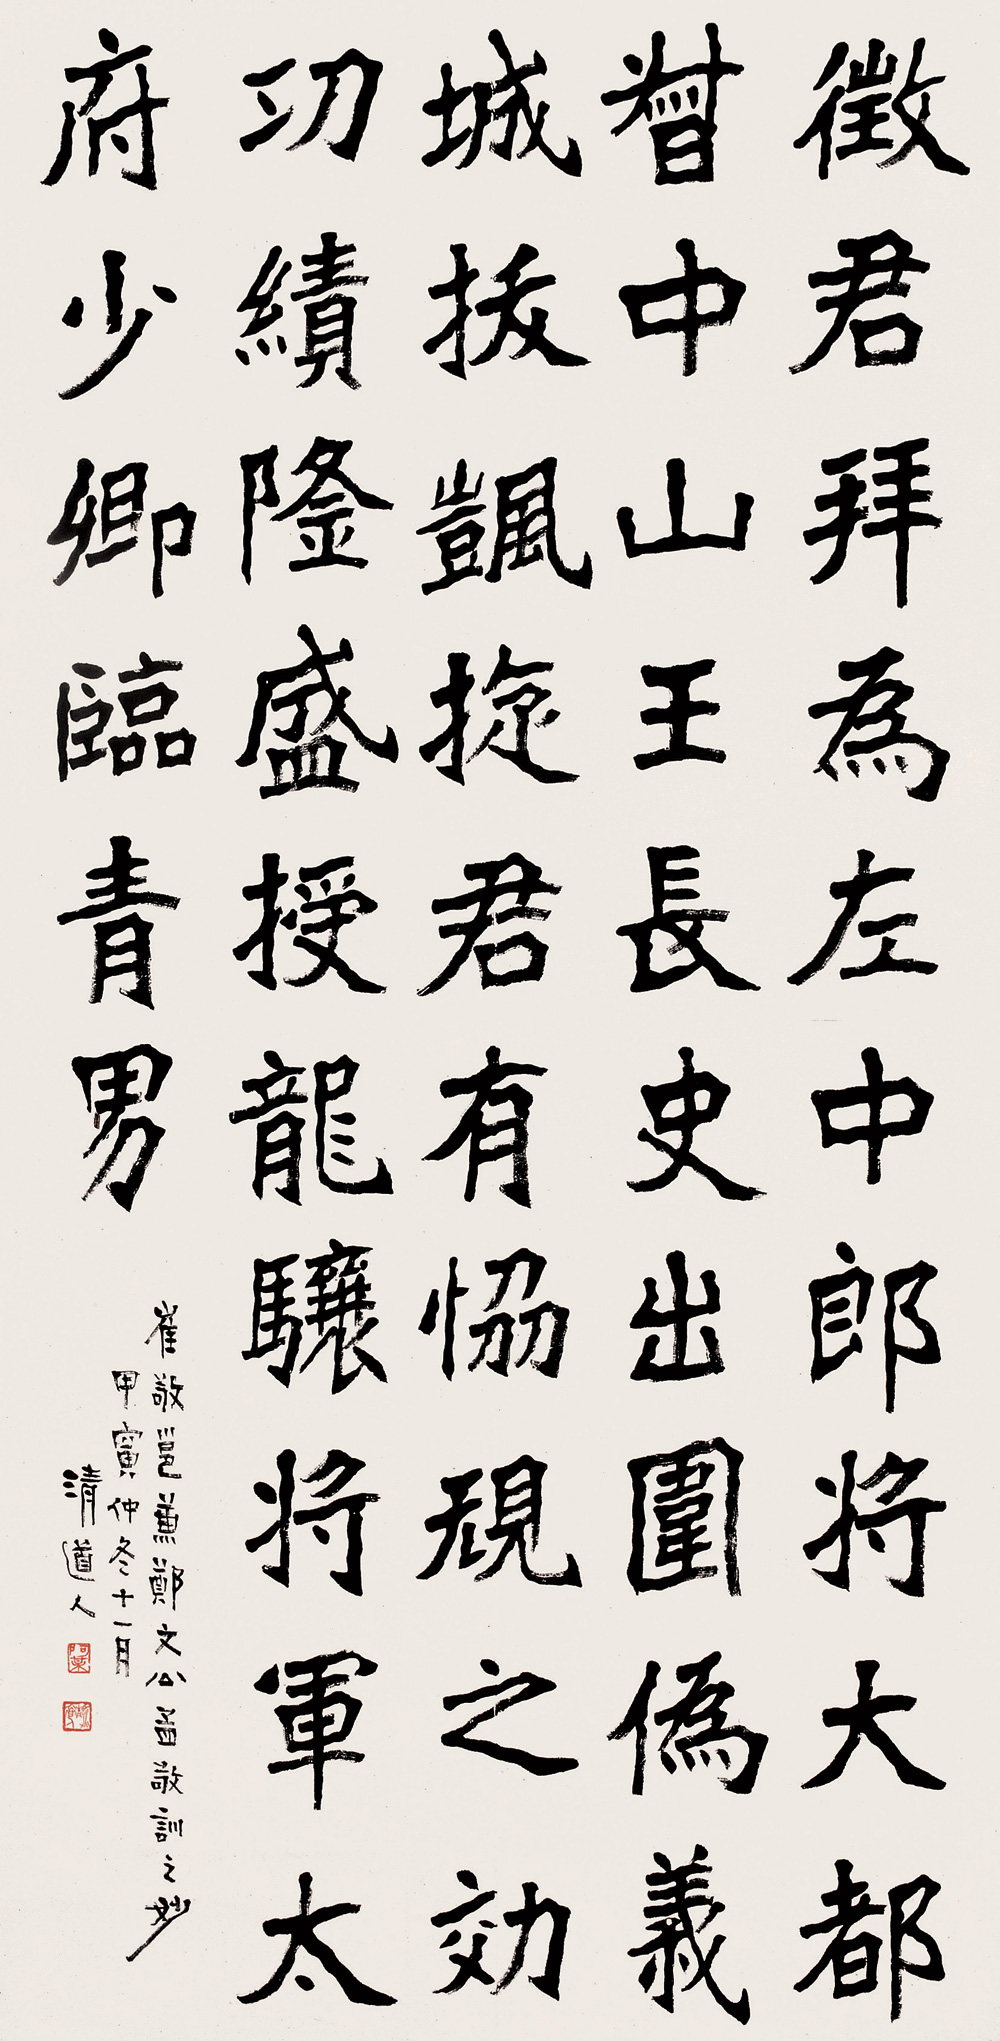 徵君拜為左中郎将大都
督中山王長史出圍偽義
城拔凱旋君有恊規之効
㓛績隆盛授龍驤将軍太
府少卿臨青男
崔敬邕兼鄭文公孟敬訓之妙
甲寅仲冬十一月
清道人